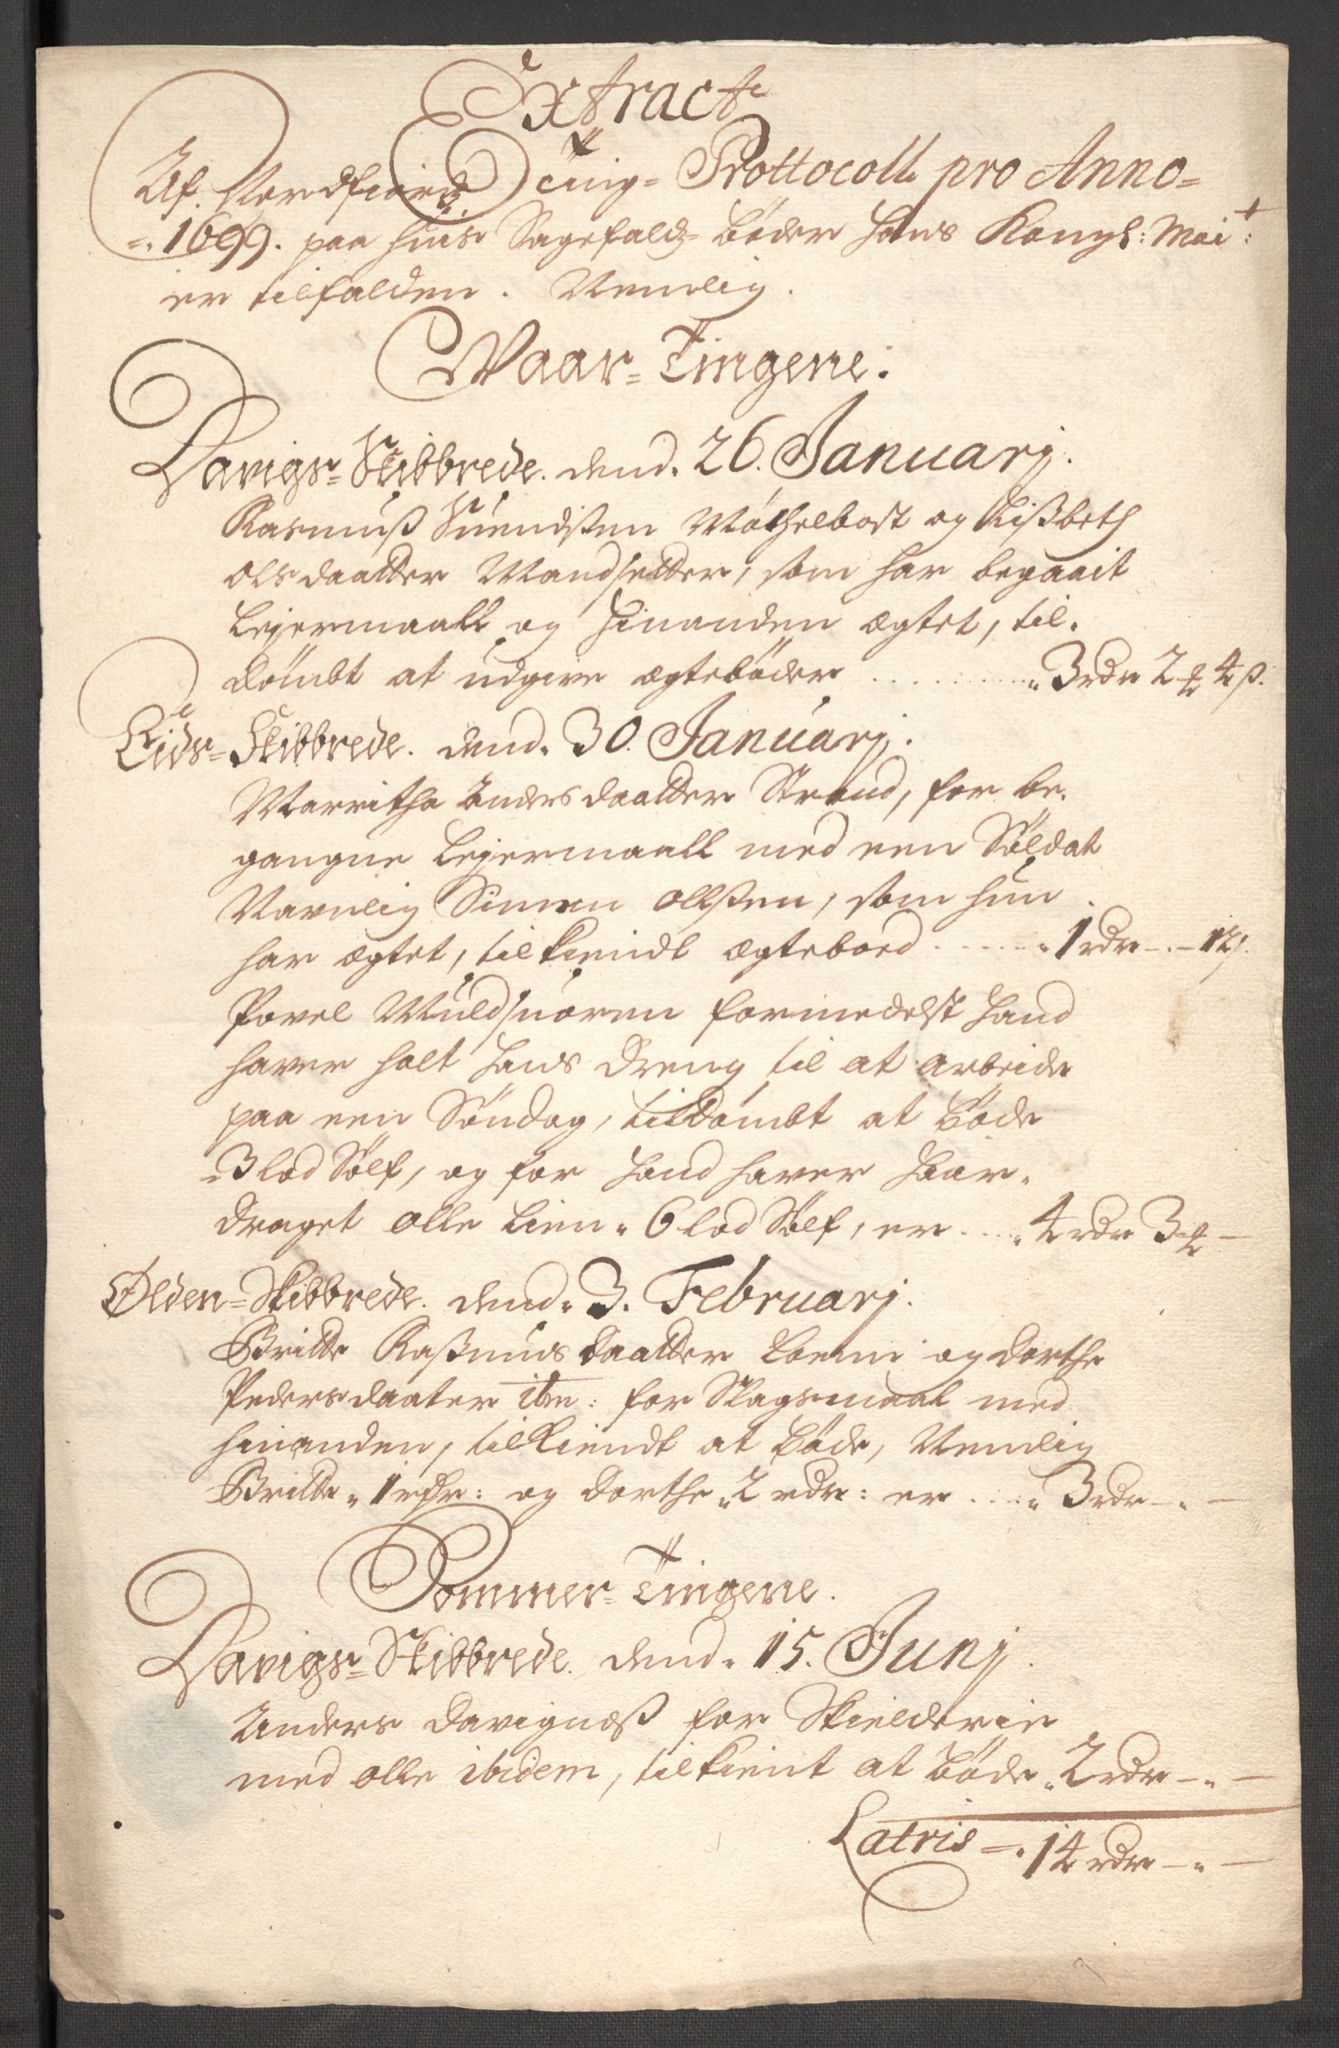 Extract
Af Nordfiord Ting- Prottocoll pro Anno-
1699. paa huis Sagefalds Bøder Hans Kongl: Mait:
er tilfalden. Nemlig.
Waar-Tingene.
Davigs-Skibbrede. dend. 26. Januarj.
Rasmuß Suendsen og Lißbeth
Olsdaatter, som har begaait
Lejermaall og hinanden ægtet, til-
dømbt at udgive ægtebøder ..... 3 rdr 2 ₰ 4 ß.
Eids-Skibbrede. dend. 30. Januarj.
Marritha Andersdaatter Strand, for be-
gangne Lejermaall med een Soldat
Navnlig Simen Olsen, som hun
har ægtet, tilkiendt ægtebood ..... 1 rdr -.- 12 ß.
Povel Muldsuoren formedelst Hand
haver holt Hans Dreng til at arbeide
paa een Søndag, tildømbt at bøde
3 lod Sølf, og for Hand haver Haar-
draget Olle Lien. 6 lod Sølf, er .... 4 rdr 3 ₰ -
Olden-Skibbrede. dend. 3. Februarj.
Britte Raßmusdaatter Loeni og Dorthe
Pedersdaater ibm: for Slagsmaal med
hinanden, tilkiendt at bøde, Nemlig
Britte. 1 rdr: og Dorthe. 2 rdr: er .... 3 rdr -.-
Sommer-Tingene.
Davigs-Skibbrede. dend. 15. Junj.
Anders Davignæß for Skielderie
med Olle ibidem, tilkient at bøde. 2 rdr -.-
Latris -. 14 rdr -.-